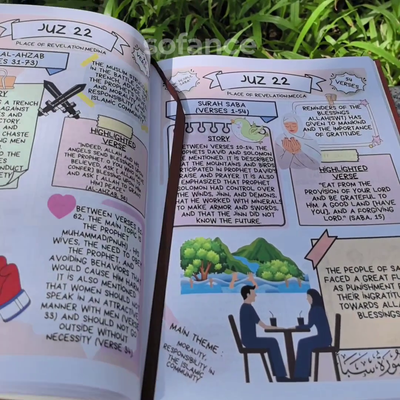 JUZ 22
PLACE OF REVELATION:MEDINA
AL-AHZAB
31-73)
THE MUSLIM
IN THE BAT
TRENCH
THEROPHET AND
AND MORAL
RESPONSIBILITY
ISLAMIC COMMUNITY
A TRENCH
AGAINST
AND
HIGHLIGHTED
VERSE
BETWEEN VERSES
62, THE MAIN TOP
THE PROPHET
MUHAMMAD(PBUH)
WIVES, THE NEED TO
THE PROPHET, AND
AVOIDING BEHAVIOR T
WOULD CAUSE HIM HARM
IT IS ALSO MENTIONED
THAT WOMEN SHOULD
SPEAK IN AN ATTRACTIVE
MANNER WITH MEN (VERSE
33) AND SHOULD NOT GO
OUTSIDE WITHOUT
NECESSITY (VERSE 34)
sofance
JUZ 22
PLACE OF REVELATION:MECCA
54
VERSES
SURAH SABA
(VERSES 1-54)
STORY
BETWEEN VERSES 10-14, THE
PROPHETS DAVID AND SOLOMON
ARE MENTIONED. IT IS DESCRIBED
THAT THE MOUNTAINS AND BIRDS
PARTICIPATED IN PROPHET DAVID'S
PRAISE AND PRAYER. IT IS ALSO
EMPHASIZED THAT PROPHET
SOLOMON HAD CONTROL OVER
THE WINDS, JINN, AND DEMONS,
THAT HE WORKED WITH MINERALS
TO MAKE ARMOR AND SWORDS,
AND THAT THE JINN DID NOT
KNOW THE FUTURE.
REMINDERS OF THE
BLESSINGS
ALLAH(SWT) HAS
GIVEN TO MANKIND
AND THE IMPORTANCE
OF GRATITUDE.
HIGHLIGHTED
VERSE
"EAT FROM THE
PROVISION OF YOUR LORD
AND BE GRATEFUL TO
HIM. A GOOD LAND [HAVE
YOU], AND A FORGIVING
LORD." (SABA, 15)
THE PEOPLE OF SA
FACED A GREAT FL
AS PUNISHMENT F
THEIR INGRATIT
TOWARDS ALLA
BLESSINGS
MAIN THEME :
MORALITY,
RESPONSIBILITY IN
THE ISLAMIC
COMMUNITY
سورة سبأ